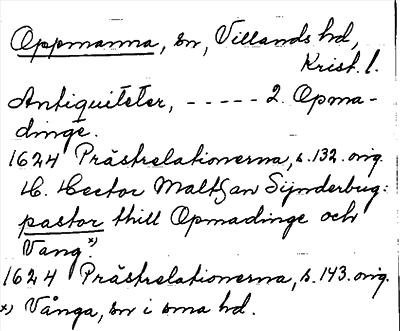 Oppmanna, sn, Villands hd,
Krist. l.
Antiquiteter, ----- 2. Opma-
dinge.
1624 Prästrelationerna, s. 132. orig.
H. Hector Maltsan Sijnderbug:
pastor thill Opmadinge och
Vang. x)
1624 Prästrelationerna, s. 143. orig.
x) Vånga, sn i sma hd.